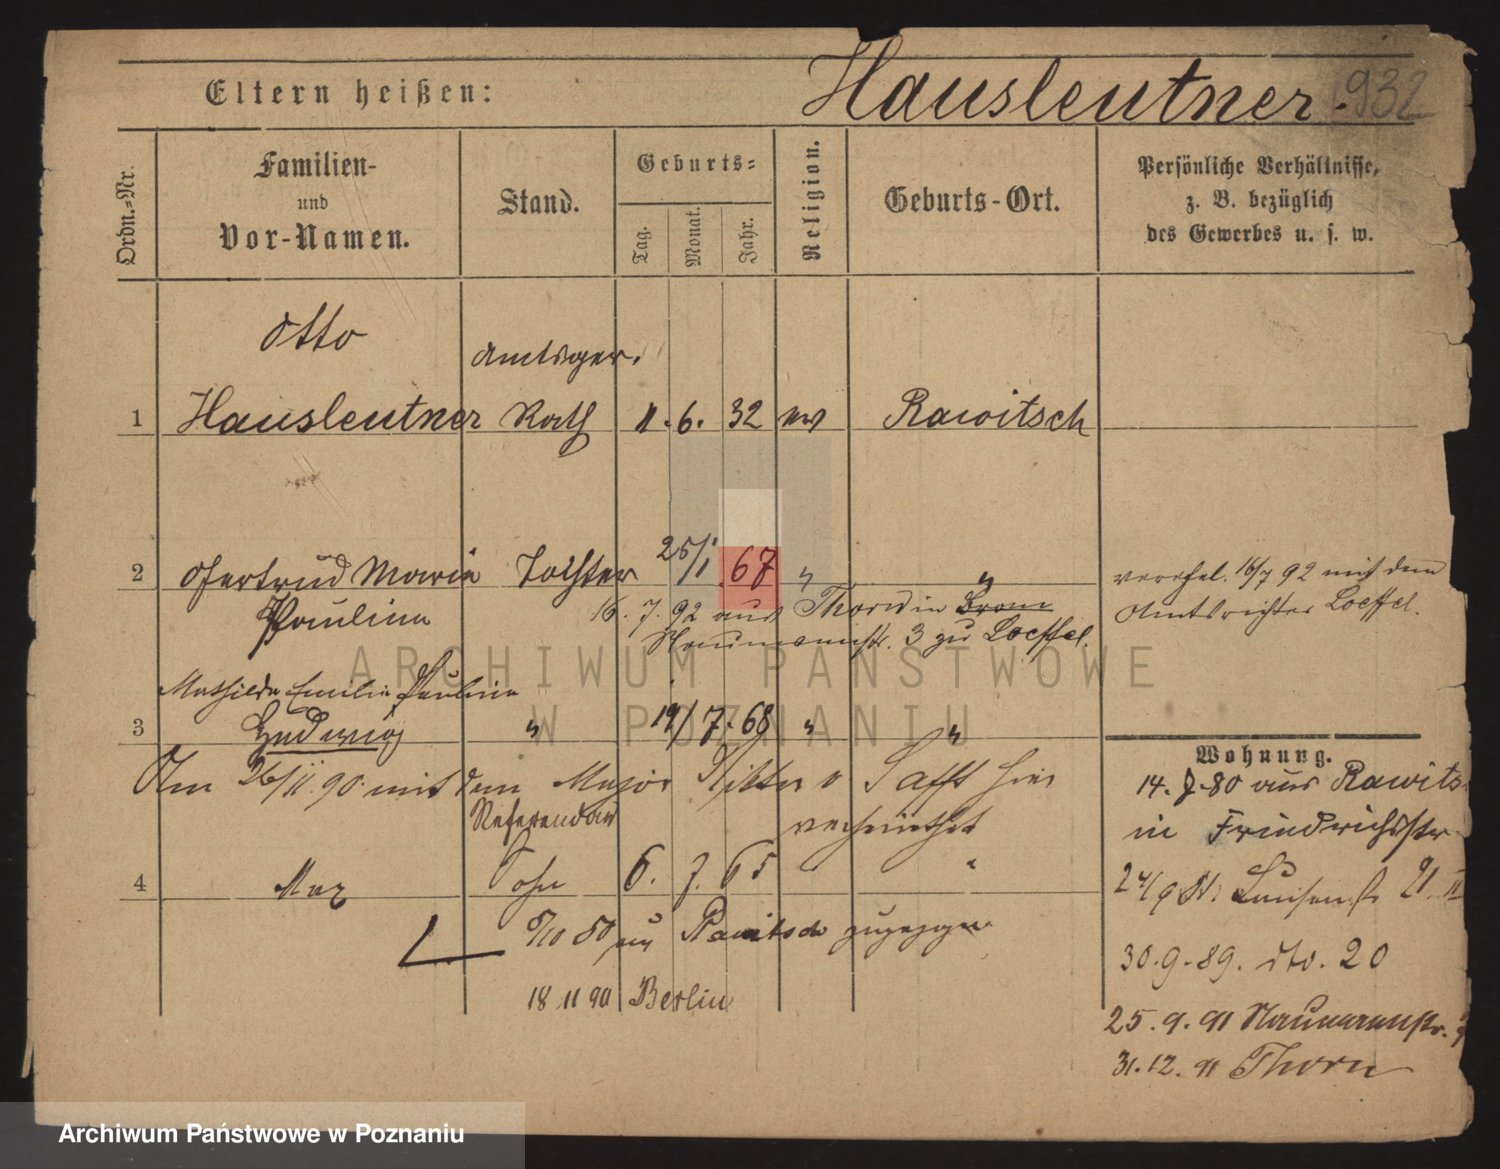 Eltern heißen:
Hausleutner. 932
Ordn.=Nr.
Familien-
und
Vor-Namen.
Stand.
Geburts=
Tag.
Monat.
Jahr.
Religion.
Geburts-Ort.
Persönliche Verhältnisse,
z. B. bezüglich
des Gewerbes u. s. w.
Otto
Amtsger.
1 Hausleutner Rath 11. 6. 32 ev Rawitsch
2 Gertrud Marie Tochter 25/1 67 " "
Paulina
16. 7. 92 aus Thorn in Brom
Naumannstr. 3 zu Loeffel.
verehel. 16/7 92 mit dem
Amtsrichter Loeffel.
Mathilde Emilie Pauline
3 Hedwig " 19/7. 68 " "
Am 26/11. 90. mit dem Major v hier
verheirathet
Referendar
4 Max Sohn 6. 7. 65 "
80 aus Rawitsch zugezogen
18 11 90 Berlin
Wohnung.
14. 7. 80 aus Rawits
in Friedrichsstr
24/9 81. Luisenstr 21. II
30. 9. 89. dto. 20
25. 9. 91 Naumannstr. 3
31. 12. 91 Thorn
ARCHIWUM PAŃSTWOWE
W POZNANIU
Archiwum Państwowe w Poznaniu